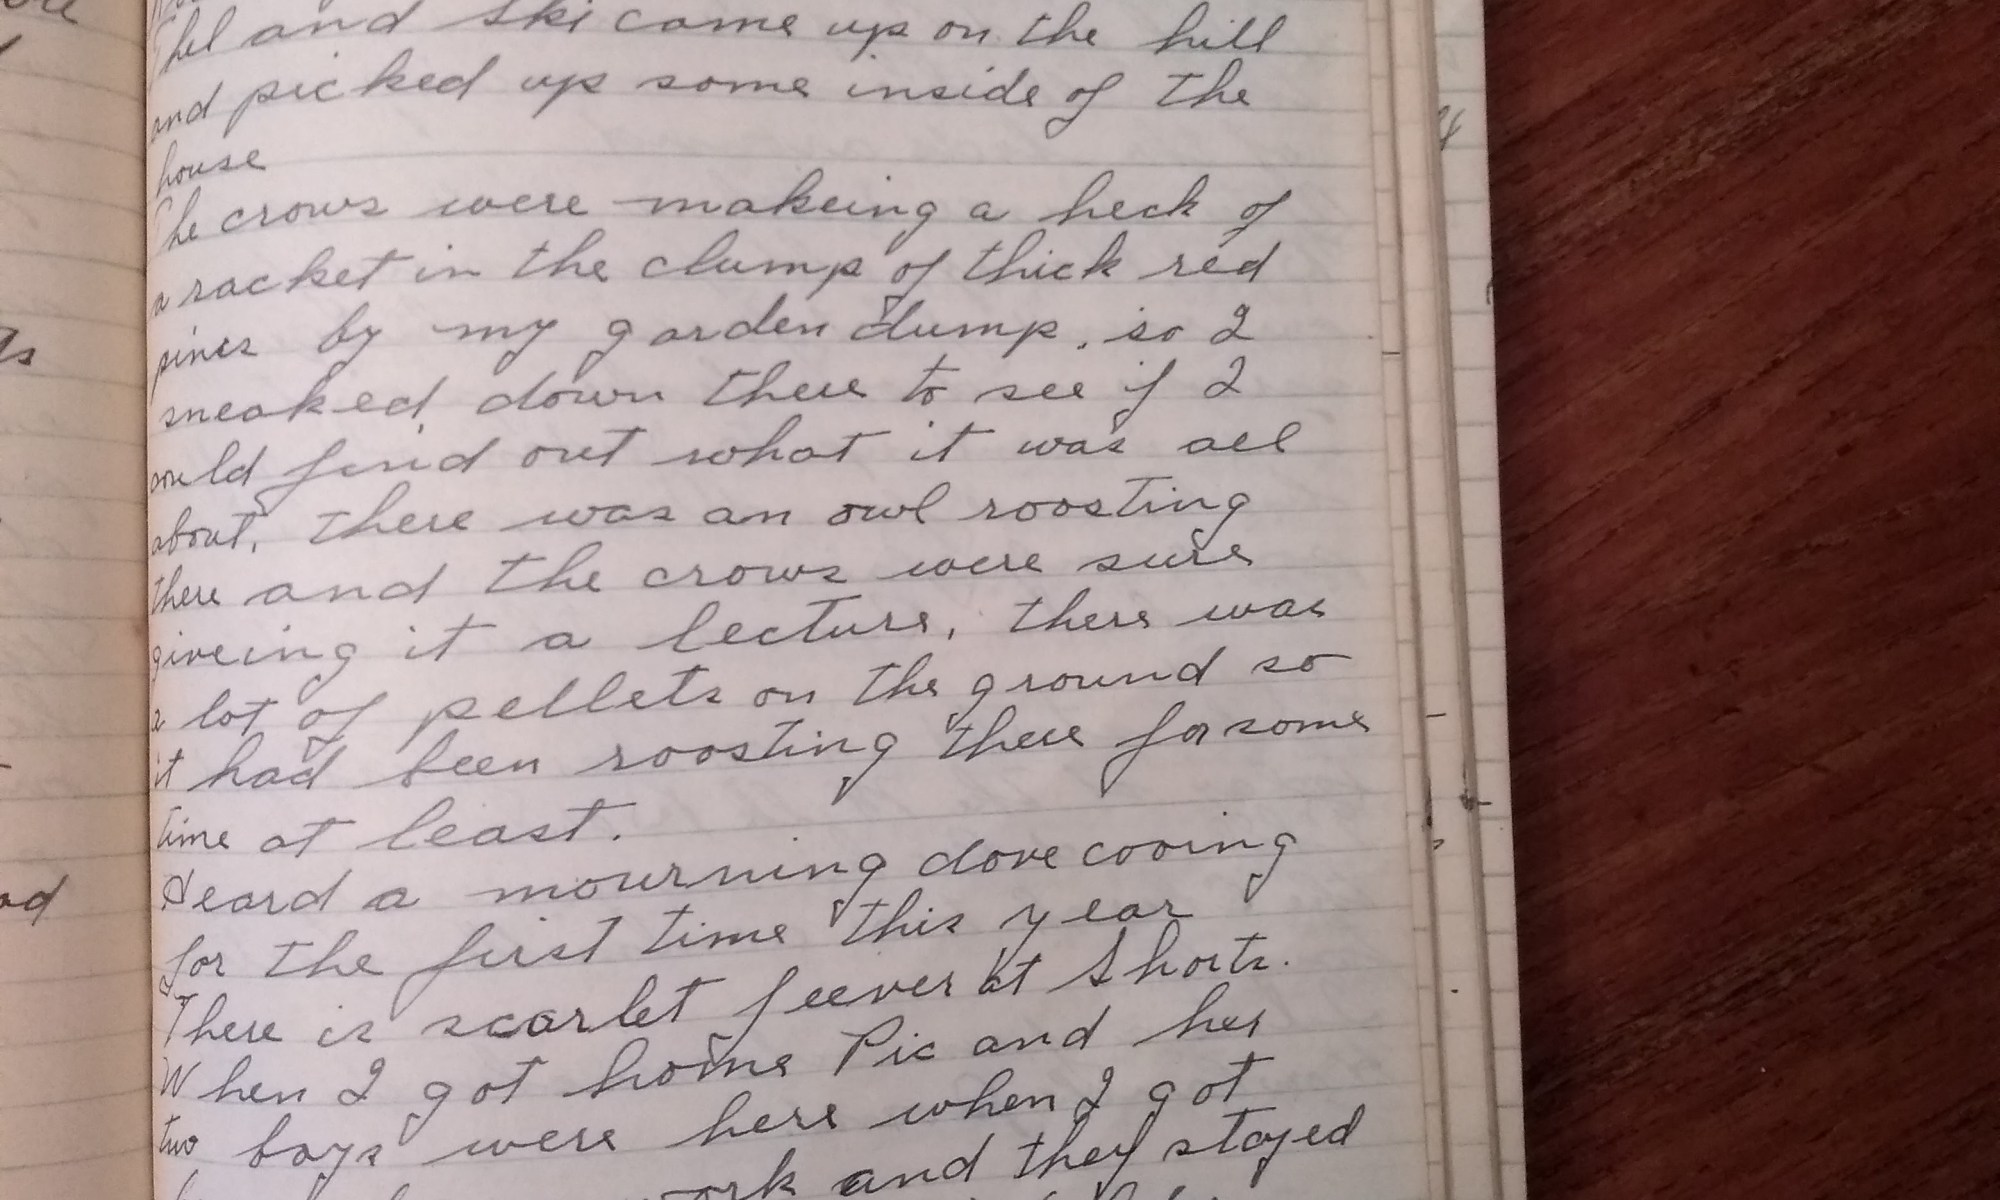 and Ski came up on the hill
and picked up some inside of the
house
The crows were makeing a heck of
a racket in the clump of thick red
pines by my garden dump, so I
sneaked down there to see if I
could find out what it was all
about, there was an owl roosting
there and the crows were sure
giveing it a lecture, there was
a lot of pellets on the ground so
it had been roosting there for some
time at least.
Heard a mourning dove cooing
for the first time this year
There is scarlet feever at Shorts.
When I got home Pic and her
two boys were here when I got
work and they stayed